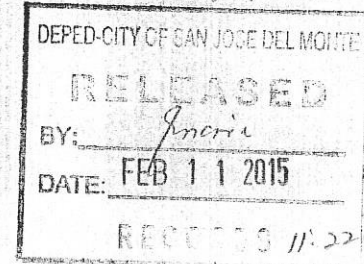 DEPED-CITY OF SAN JOSE DEL MONTE
RELEASED
BY:
DATE: FEB 11 2015
RECORDS 11:22